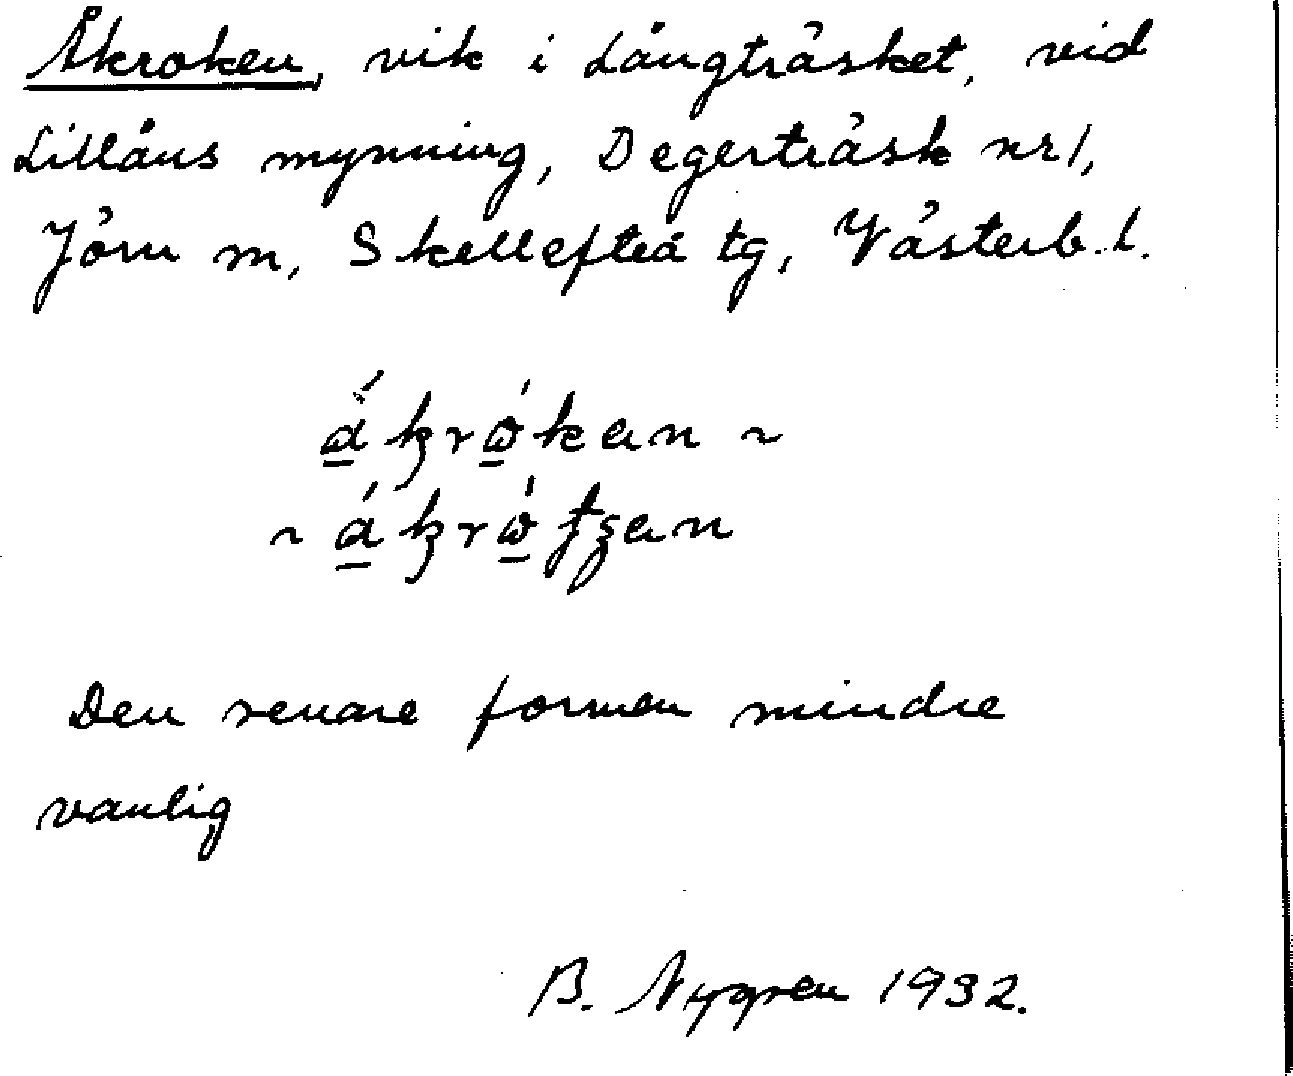 Åkroken, vik i Långträsket, vid
Lillåns mynning, Degerträsk nr 1,
Jörn m, Skellefteå tg, Västerb. l.
Den senare formen mindre
vanlig
B. Nygren 1932.